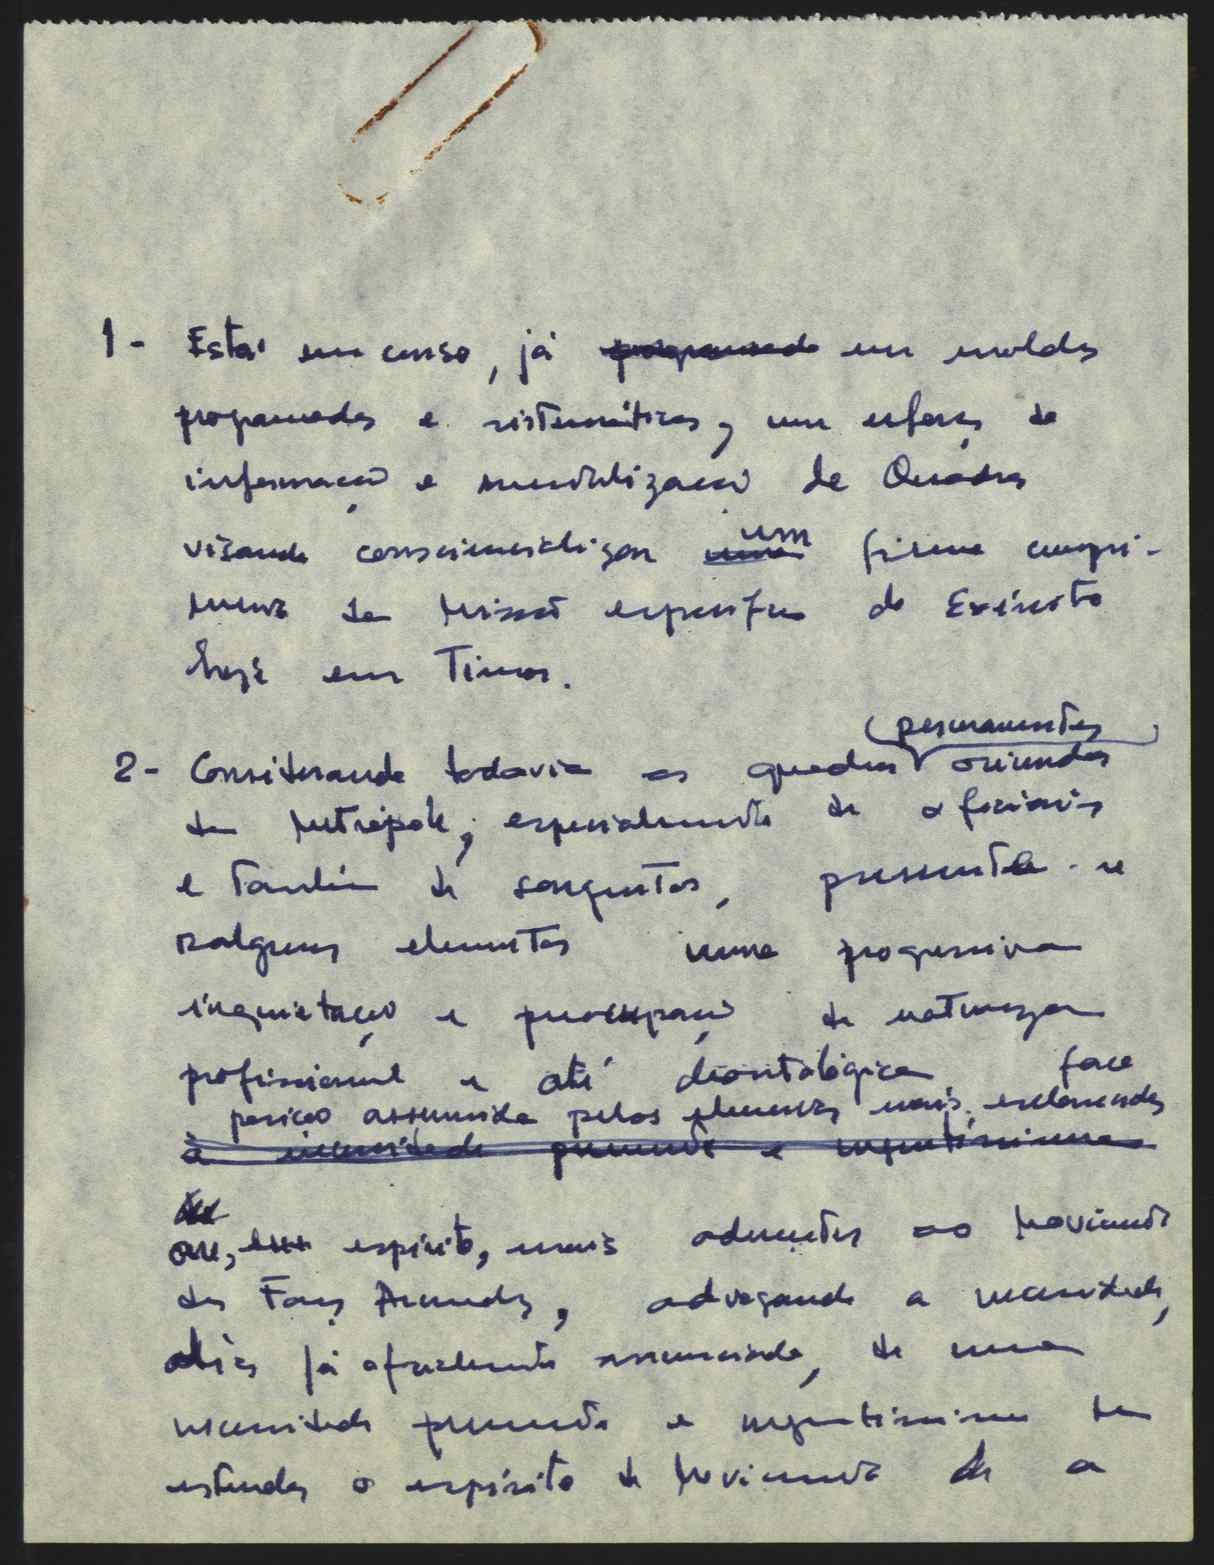 1 - Está em curso, já programado em moldes
programados e sistemáticos, um esforço de
informação e mentalização de Quadros
visando consciencializar um firme cumpri-
mento da Missão específica do Exército
hoje em Timor.
(permanentes)
2 - Considerando todavia os quadros oriundos
da Metrópole, especialmente de oficiais
e também de sargentos, pressente-se
nalguns elementos uma progressiva
inquietação e preocupação de natureza
profissional e até deontológica face
posição assumida pelos elementos mais esclarecidos
à necessidade premente e urgentíssima
ou, em espírito, mais aderentes ao Movimento
das Forças Armadas, advogando a necessidade,
aliás já oficialmente anunciada, de uma
necessidade premente e urgentíssima de
estender o espírito do Movimento de a